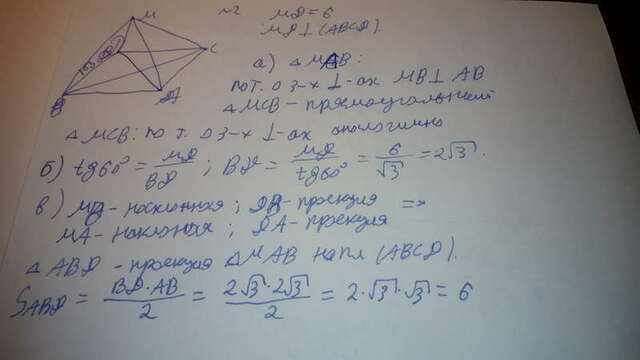 M
C
B
A
№2 MD = 6
MD ⊥ (ABCD).
а) △ MAB:
по т. о 3-х ⊥-ах MB ⊥ AB
△ MCB - прямоугольный
△ MCB: по т. о 3-х ⊥-ах аналогично
б) tg60° = MD/BD ; BD = MD/tg60° = 6/√3 = 2√3.
в) MB - наклонная ; DB - проекция =>
MA - наклонная ; DA - проекция
△ ABD - проекция △ MAB на пл (ABCD).
S_ABD = BD·AB/2 = 2√3·2√3/2 = 2·√3·√3 = 6